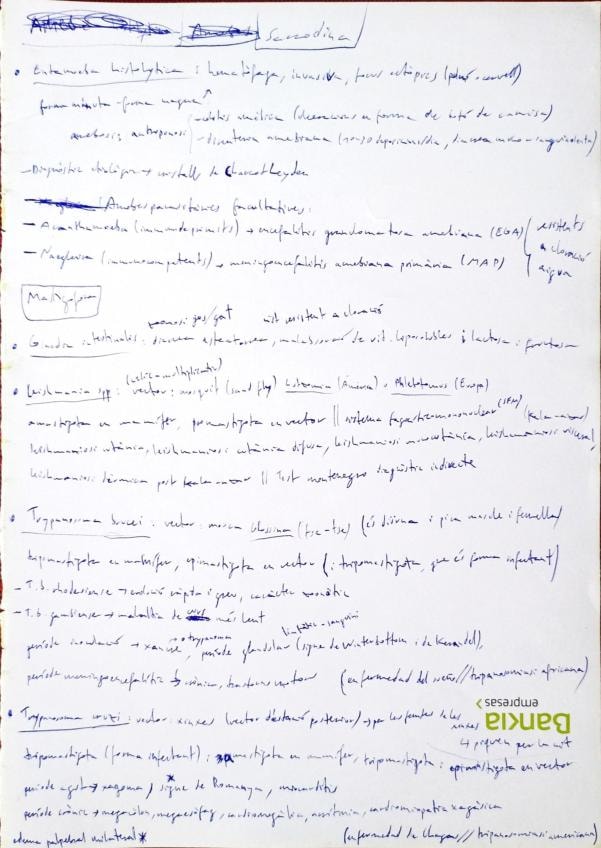 Sarcodina
• Entamoeba histolytica : hematòfaga, invasiva, focus ectòpics (pulmó-cervell)
forma minuta - forma magna
amebosis; antroponosi - colitis amèbica (ulceracions en forma de botó de camisa)
- disenteria amebiana (10-30 deposicions/dia, diarrea muco-sanguinolenta)
- Diagnòstic etiològic → cristalls de Charcot-Leyden
Amebes parasitàries facultatives:
- Acanthamoeba (immunodeprimits) → encefalitis granulomatosa amebiana (EGA)
- Naegleria (immunocompetents) → meningoencefalitis amebiana primària (MAP)
resistents a cloració aigua
Mastigophora
• Giardia intestinalis : diarrea esteatorrea, malabsorció de vit. liposolubles i lactosa i fructosa
zoonosi gos/gat
resistent a cloració
• Leishmania spp : vector: mosquit (sand fly) Lutzomia (Amèrica) o Phlebotomus (Europa)
(cèlica-multiplicativa)
amastigota en mamífer, promastigota en vector || sistema fagocític mononuclear (SFM)
(Kala-azar)
leishmaniosi cutània, leishmaniosi cutània difusa, leishmaniosi mucocutània, leishmaniosi visceral,
leishmaniosi dèrmica post kala-azar || Test montenegro diagnòstic indirecte
• Trypanosoma brucei : vector: mosca Glossina (tse-tse) (és diürna i pica mascle i femella)
tripomastigota en mamífer, epimastigota en vector (i tripomastigota, que és forma infectant)
- T.b. rhodesiense → evolució ràpida i greu, caràcter zoonòtic
- T.b. gambiense → malaltia de curs més lent
període inoculació → xancre, o tripanoma
període glandular (signe de Winterbottom i de Kerandel),
limfàtic-sanguini
període meningoencefalític → crònica, trastorn motor (enfermedad del sueño // tripanosomiasi africana)
Bankia
empresas
• Trypanosoma cruzi : vector: xinxes (vector d'estació posterior) → per les femtes de les xinxes
↳ piquen per la nit
tripomastigota (forma infectant) : amastigota en mamífer, tripomastigota : epimastigota en vector
període agut → xagoma, signe de Romanya*, miocarditis
període crònic → megacòlon, megaesòfag, cardiomegàlia, arrítmia, cardiomiopatia xagàsica
edema palpebral unilateral* (enfermedad de Chagas // tripanosomiasi americana)